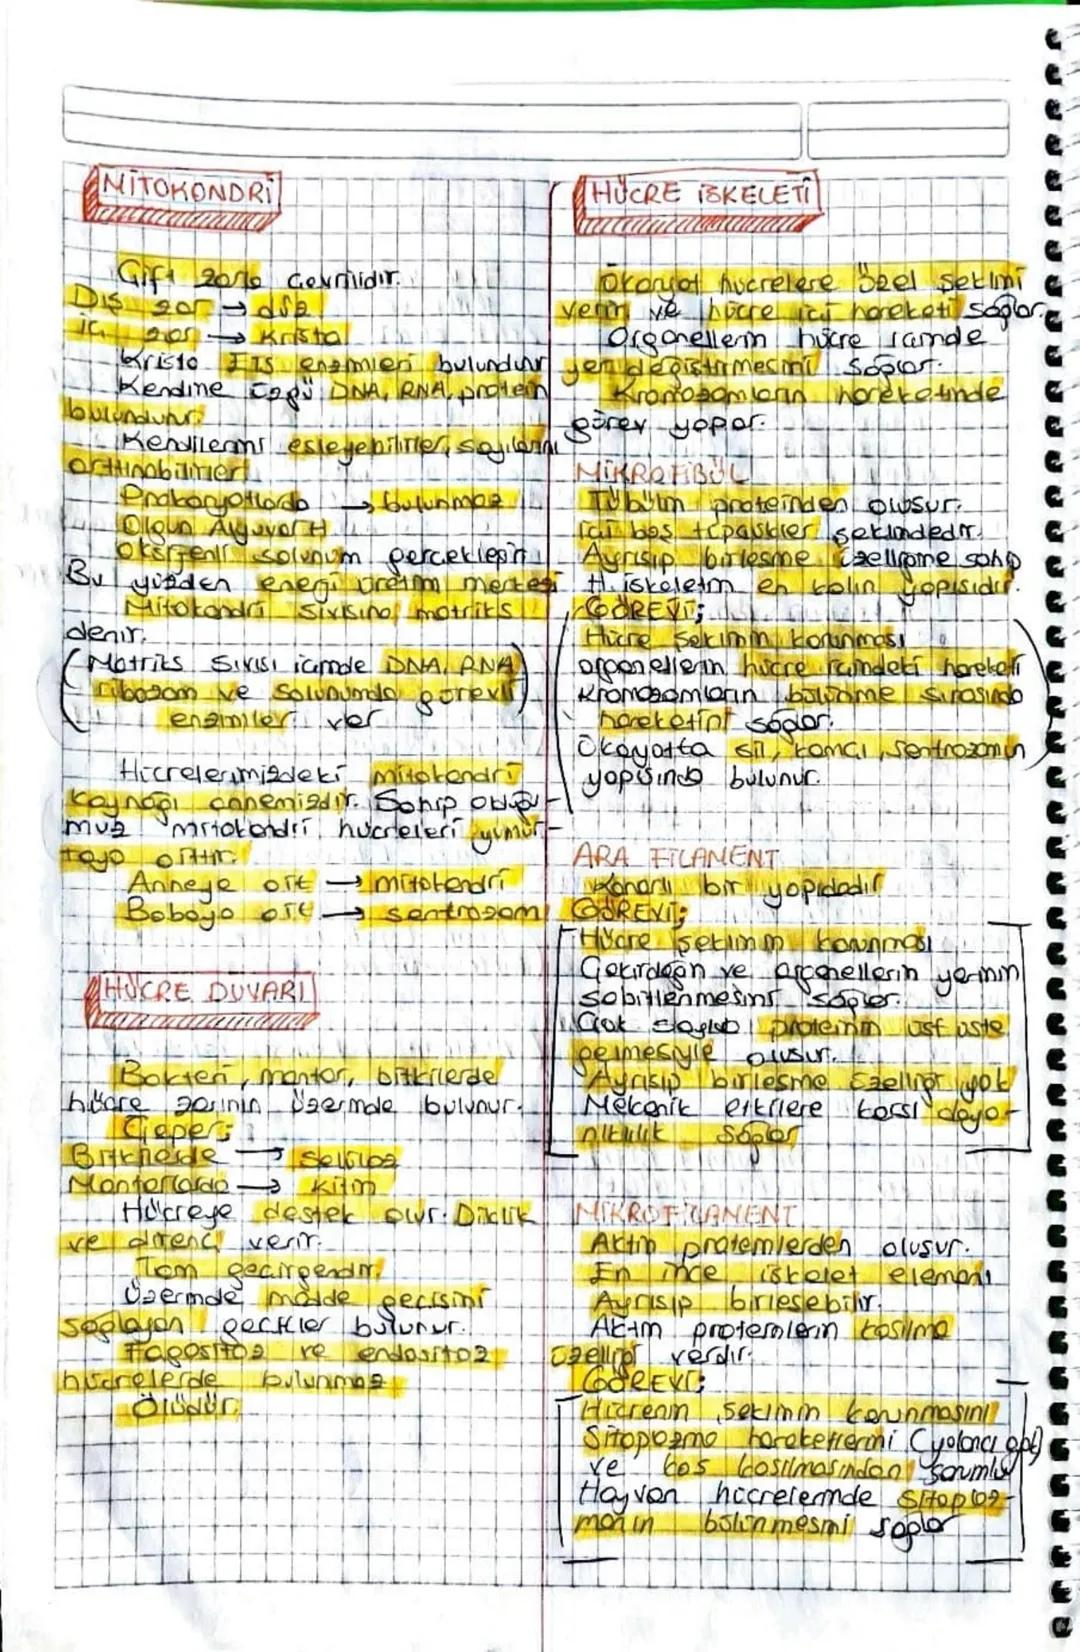 MİTOKONDRİ
Çift zarla çevrilidir.
Dış zar → düz
iç zar → Krista
Krista ETS enzimleri bulundurur
Kendine özgü DNA, RNA, protein
bulundurur.
Kendilerini eşleyebilirler, sayılarını
arttırabilirler
Prokaryotlarda → bulunmaz
Olgun Alyuvar H
Oksijenli solunum gerçekleşir
Bu yüzden enerji üretim merkezi
Mitokondri sıvısına matriks
denir.
(Matriks sıvısı içinde DNA, RNA
ribozom ve solunumda görevli
enzimler var)
Hücrelerimizdeki mitokondri
kaynağı annemizdir. Sahip olduğu-
muz mitokondri hücreleri yumur-
taya aittir.
Anneye ait → mitokondri
Babaya ait → sentrozom
HÜCRE DUVARI
Bakteri, mantar, bitkilerde
hücre zarının üzerinde bulunur.
Çeper;
Bitkilerde → selüloz
Mantarlarda → kitin
Hücreye destek olur. Diklik
ve direnç verir.
Tam geçirgendir.
Üzerinde madde geçişini
sağlayan geçitler bulunur.
Fagositoz ve endositoz
hücrelerde bulunmaz
Ölüdür.
HÜCRE İSKELETİ
Ökaryot hücrelere özel şeklini
verir ve hücre içi hareketi sağlar.
Organellerin hücre içinde
yer değiştirmesini sağlar.
Kromozomların hareketinde
görev yapar.
MİKROFİBÜL
Tübülin proteinden oluşur.
İçi boş tüpçükler şeklindedir.
Ayrışıp birleşme özelliğine sahip
H. iskeletin en kalın yapısıdır.
GÖREVİ;
Hücre şeklinin korunması
organellerin hücre içindeki hareketi
kromozomların bölünme sırasında
hareketini sağlar.
Ökayotta sil, kamçı, sentrozomun
yapısında bulunur.
ARA FİLAMENT
Kararlı bir yapıdadır
GÖREVİ;
Hücre şeklinin korunması
Çekirdeğin ve organellerin yerinin
sabitlenmesini sağlar.
Çok sayıda proteinin üst üste
gelmesiyle oluşur.
Ayrışıp birleşme özelliği yok
Mekanik etkilere karşı daya-
nıklılık sağlar
MİKROFİLAMENT
Aktin proteinlerden oluşur.
En ince iskelet elemanı
Ayrışıp birleşebilir.
Aktin proteinlerin kasılma
özelliği vardır.
GÖREVİ;
Hücrenin şeklinin korunmasını
Sitoplazma hareketlerini (yalancı ayak)
ve kas kasılmasından sorumlu
Hayvan hücrelerinde sitoplaz-
manın bölünmesini sağlar